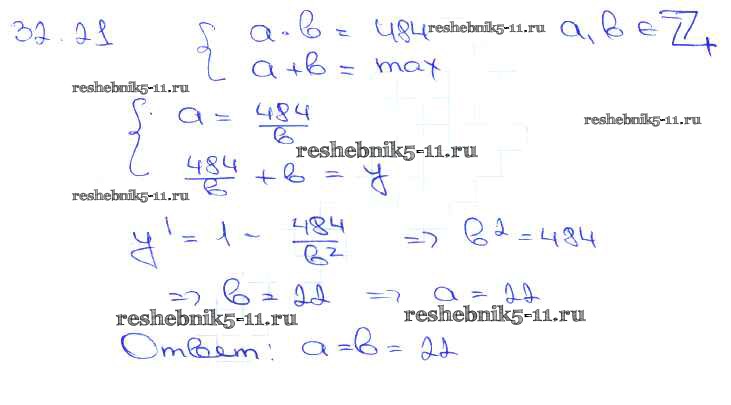 32.21 { a·b = 484 reshebnik5-11.ru a, b ∈ ℤ+
a+b = max
reshebnik5-11.ru
{ a = 484/b reshebnik5-11.ru
reshebnik5-11.ru
484/b + b = y
reshebnik5-11.ru
y' = 1 - 484/b² => b² = 484
=> b = 22 => a = 22
reshebnik5-11.ru reshebnik5-11.ru
Ответ: a=b= 22